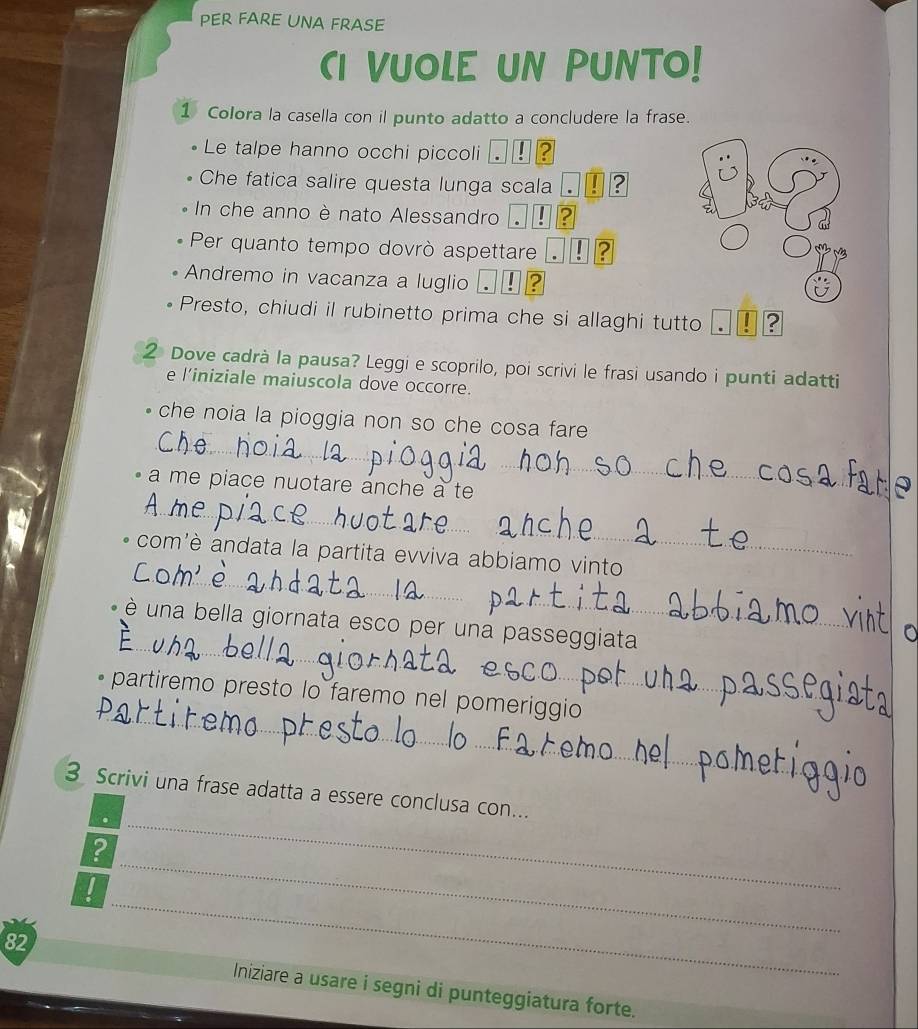 PER FARE UNA FRASE
CI VUOLE UN PUNTO!
1 Colora la casella con il punto adatto a concludere la frase.
• Le talpe hanno occhi piccoli . ! ?
• Che fatica salire questa lunga scala . ! ?
• In che anno è nato Alessandro . ! ?
• Per quanto tempo dovrò aspettare . ! ?
• Andremo in vacanza a luglio . ! ?
• Presto, chiudi il rubinetto prima che si allaghi tutto . ! ?
2 Dove cadrà la pausa? Leggi e scoprilo, poi scrivi le frasi usando i punti adatti
e l'iniziale maiuscola dove occorre.
• che noia la pioggia non so che cosa fare
Che noia la pioggia non so che cosa fare
• a me piace nuotare anche a te
A me piace nuotare anche a te
• com'è andata la partita evviva abbiamo vinto
Com'è andata la partita abbiamo vinto
• è una bella giornata esco per una passeggiata
È una bella giornata esco per una passegiata
• partiremo presto lo faremo nel pomeriggio
Partiremo presto lo lo Faremo nel pomeriggio
3 Scrivi una frase adatta a essere conclusa con...
.
?
!
82
Iniziare a usare i segni di punteggiatura forte.